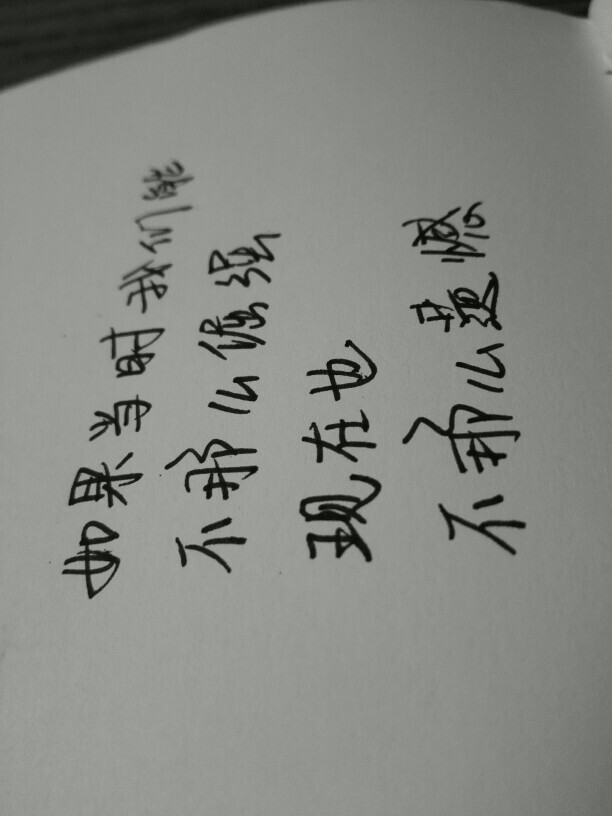 如果当时我们能
不那么倔强
现在也
不那么遗憾